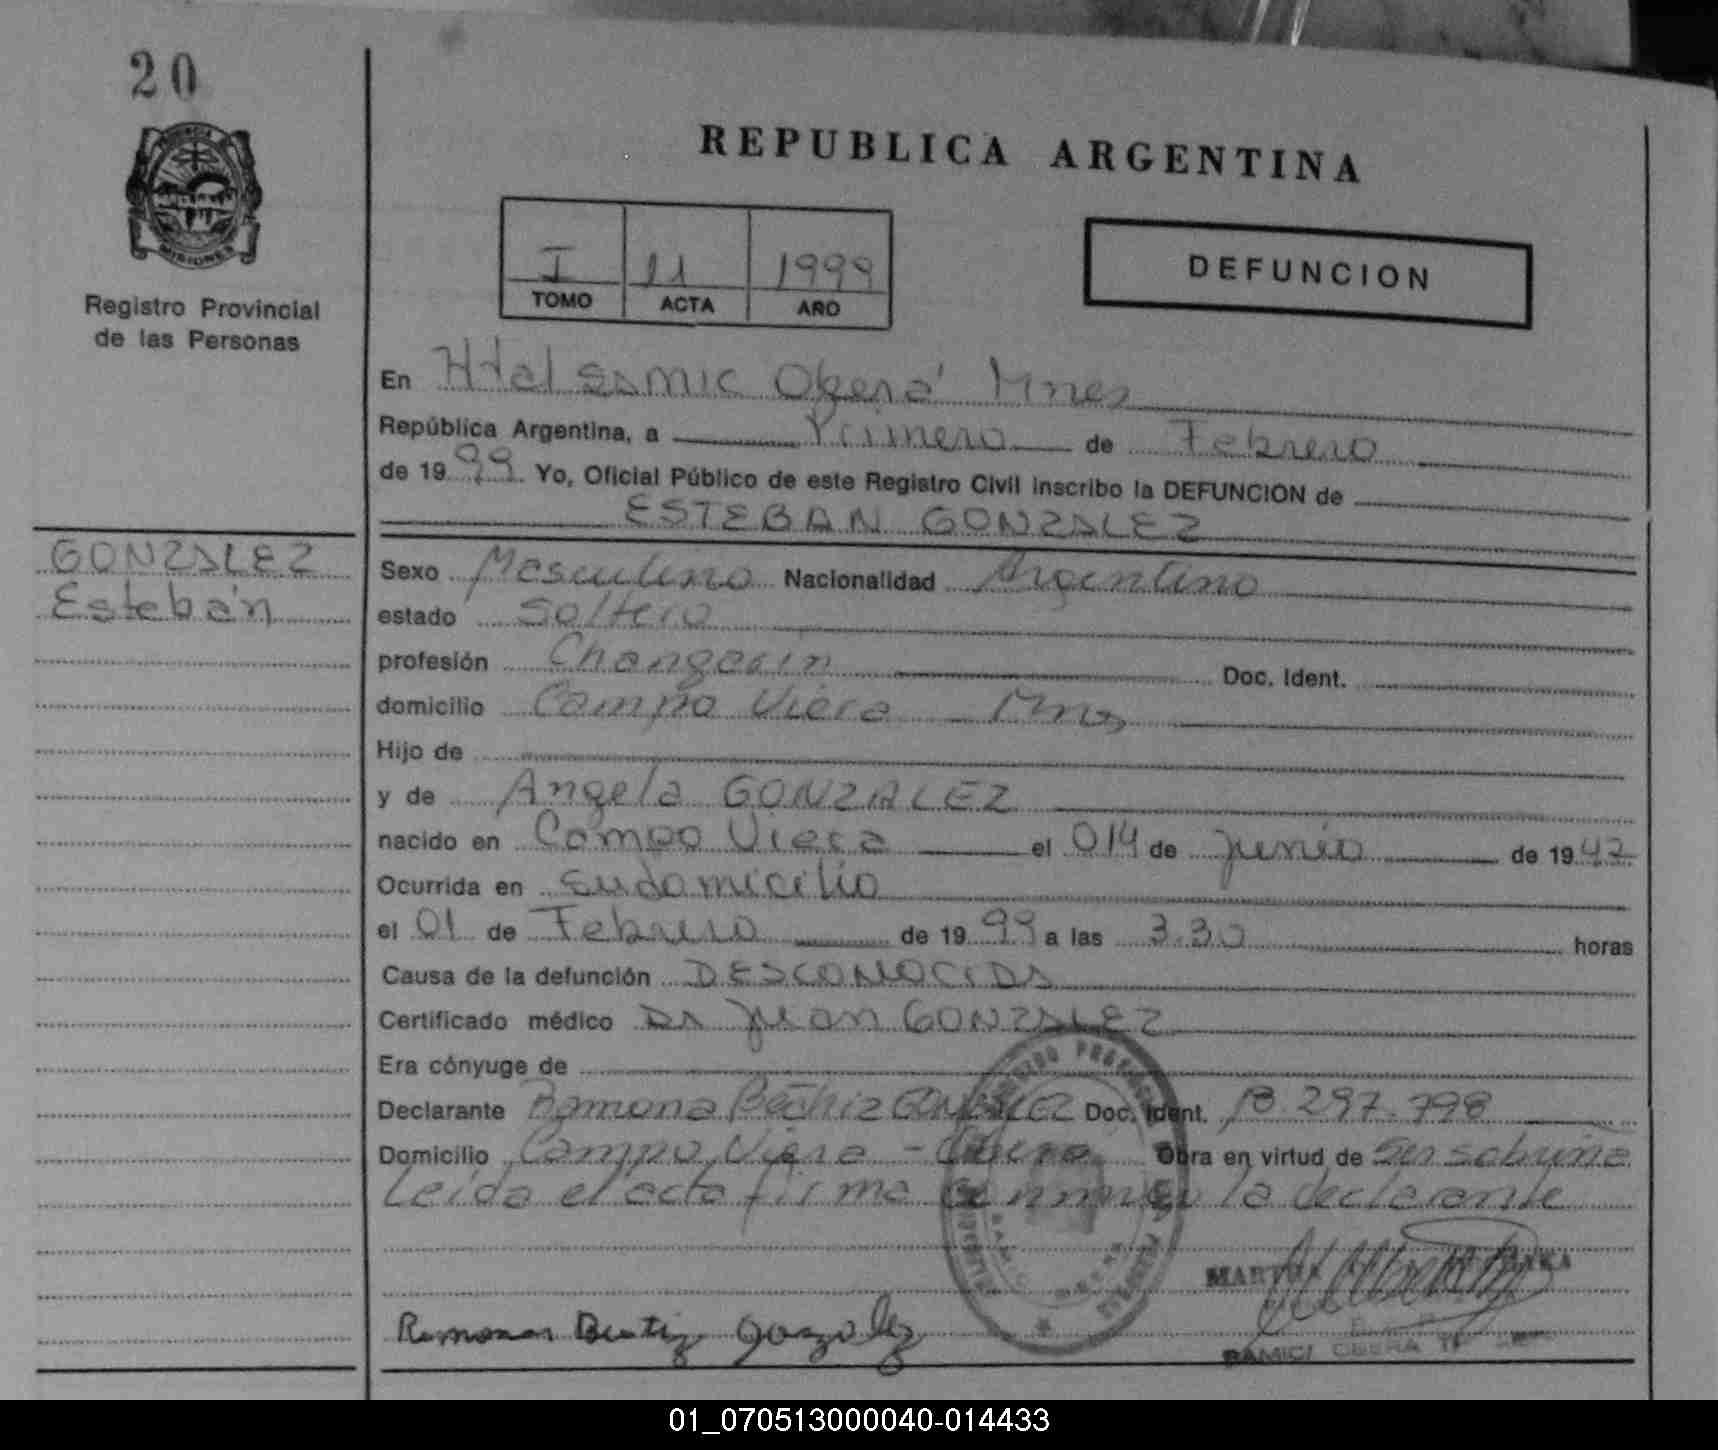 20
PROVINCIA
MISIONES
Registro Provincial
de las Personas
GONZALEZ
Esteban
REPUBLICA ARGENTINA
I 11 1999
TOMO ACTA AÑO
DEFUNCION
En Htal SAMIC Oberá Mnes
República Argentina, a Primero de Febrero
de 1999 Yo, Oficial Público de este Registro Civil inscribo la DEFUNCION de
ESTEBAN GONZALEZ
Sexo Masculino Nacionalidad Argentino
estado Soltero
profesión Changarin Doc. Ident.
domicilio Campo Viera Mnes
Hijo de
y de Angela GONZALEZ
nacido en Campo Viera el 014 de junio de 1942
Ocurrida en su domicilio
el 01 de Febrero de 1999 a las 3.30 horas
Causa de la defunción DESCONOCIDA
Certificado médico DR Juan GONZALEZ
Era cónyuge de
Declarante Ramona Beatriz GONZALEZ Doc. Ident. 13.297.798
Domicilio Campo Viera - Oberá Obra en virtud de ser sobrina
Leida el acta firma la declarante
MARTHA
Ramona Beatriz Gonzalez
SAMIC OBERA
01_070513000040-014433